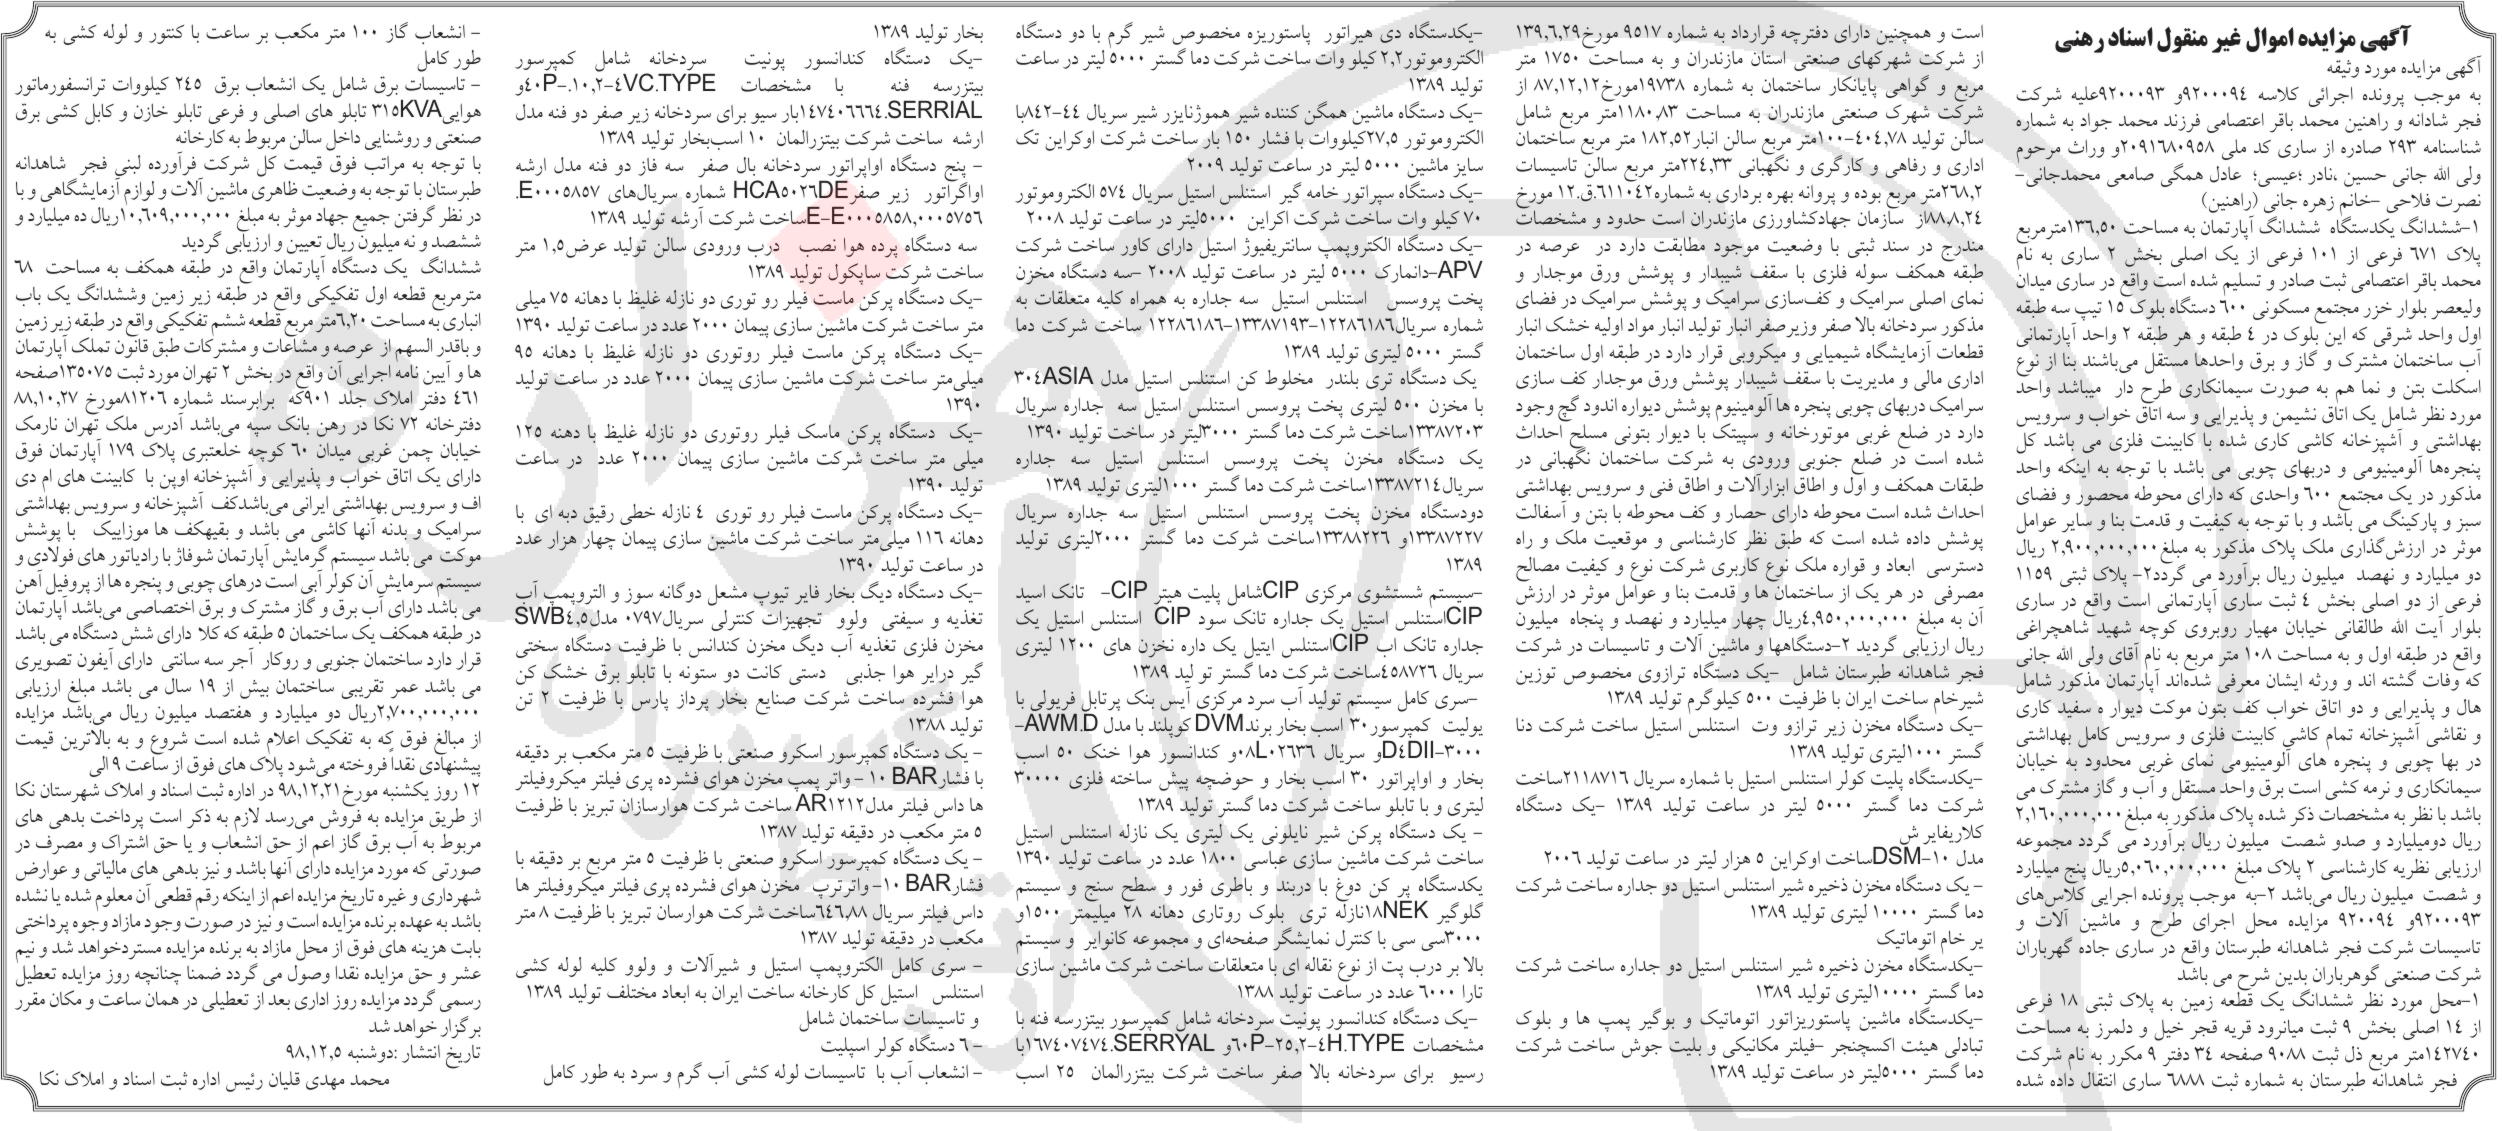 آگهی مزایده اموال غیر منقول اسناد رهنی
آگهی مزایده مورد وثیقه
به موجب پرونده اجرائی کلاسه ۹۲۰۰۰۹٤و ۹۲۰۰۰۹۳علیه شرکت
فجر شاداانه و راهنین محمد باقر اعتصامی فرزند محمد جواد به شماره
شناسنامه ۲۹۳ صادره از ساری کد ملی ۲۰۹۱٦۸۰۹۵۸و وراث مرحوم
ولی الله جانی حسین ،نادر ؛عیسی؛ عادل همگی صامعی محمدجانی-
نصرت فلاحی -خانم زهره جانی (راهنین)
۱-ششدانگ یکدستگاه ششدانگ آپارتمان به مساحت ۱۳٦,۵۰مترمربع
پلاک ٦۷۱ فرعی از ۱۰۱ فرعی از یک اصلی بخش ۲ ساری به نام
محمد باقر اعتصامی ثبت صادر و تسلیم شده است واقع در ساری میدان
ولیعصر بلوار خزر مجتمع مسکونی ٦۰۰ دستگاه بلوک ۱۵ تیپ سه طبقه
اول واحد شرقی که این بلوک در ٤ طبقه و هر طبقه ۲ واحد آپارتمانی
آب ساختمان مشترک و گاز و برق واحدها مستقل می‌باشند بنا از نوع
اسکلت بتن و نما هم به صورت سیمانکاری طرح دار میباشد واحد
مورد نظر شامل یک اتاق نشیمن و پذیرایی و سه اتاق خواب و سرویس
بهداشتی و آشپزخانه کاشی کاری شده با کابینت فلزی می باشد کل
پنجره‌ها آلومینیومی و دربهای چوبی می باشد با توجه به اینکه واحد
مذکور در یک مجتمع ٦۰۰ واحدی که دارای محوطه محصور و فضای
سبز و پارکینگ می باشد و با توجه به کیفیت و قدمت بنا و سایر عوامل
موثر در ارزش‌گذاری ملک پلاک مذکور به مبلغ۲,۹۰۰,۰۰۰,۰۰۰ ریال
دو میلیارد و نهصد میلیون ریال برآورد می گردد۲- پلاک ثبتی ۱۱۵۹
فرعی از دو اصلی بخش ٤ ثبت ساری آپارتمانی است واقع در ساری
بلوار آیت الله طالقانی خیابان مهیار روبروی کوچه شهید شاهچراغی
واقع در طبقه اول و به مساحت ۱۰۸ متر مربع به نام آقای ولی الله جانی
که وفات گشته اند و ورثه ایشان معرفی شده‌اند آپارتمان مذکور شامل
هال و پذیرایی و دو اتاق خواب کف بتون موکت دیوار ه سفید کاری
و نقاشی آشپزخانه تمام کاشی کابینت فلزی و سرویس کامل بهداشتی
در بها چوبی و پنجره های آلومینیومی نمای غربی محدود به خیابان
سیمانکاری و نرمه کشی است برق واحد مستقل و آب و گاز مشترک می
باشد با نظر به مشخصات ذکر شده پلاک مذکور به مبلغ۲,۱٦۰,۰۰۰,۰۰۰
ریال دومیلیارد و صدو شصت میلیون ریال برآورد می گردد مجموعه
ارزیابی نظریه کارشناسی ۲ پلاک مبلغ ۵,۰٦۰,۰۰۰,۰۰۰ریال پنج میلیارد
و شصت میلیون ریال می‌باشد ۲-به موجب پرونده اجرایی کلاس‌های
۹۲۰۰۰۹۳و ۹۲۰۰۹٤ مزایده محل اجرای طرح و ماشین آلات و
تاسیسات شرکت فجر شاهدانه طبرستان واقع در ساری جاده گهرباران
شرکت صنعتی گوهرباران بدین شرح می باشد
۱-محل مورد نظر ششدانگ یک قطعه زمین به پلاک ثبتی ۱۸ فرعی
از ۱٤ اصلی بخش ۹ ثبت میانرود قریه قجر خیل و دلمرز به مساحت
۱٤۲۷٤۰متر مربع ذل ثبت ۹۰۸۸ صفحه ۳٤ دفتر ۹ مکرر به نام شرکت
فجر شاهدانه طبرستان به شماره ثبت ٦۸۸۸ ساری انتقال داده شده
است و همچنین دارای دفترچه قرارداد به شماره ۹۵۱۷ مورخ۱۳۹,٦,۲۹
از شرکت شهرکهای صنعتی استان مازندران و به مساحت ۱۷۵۰ متر
مربع و گواهی پایانکار ساختمان به شماره ۱۹۷۳۸مورخ۸۷,۱۲,۱۲ از
شرکت شهرک صنعتی مازندران به مساحت ۱۱۸۰,۸۳متر مربع شامل
سالن تولید ٤۰٤,۷۸-۱۰۰متر مربع سالن انبار۱۸۲,۵۲ متر مربع ساختمان
اداری و رفاهی و کارگری و نگهبانی ۲۲٤,۳۳متر مربع سالن تاسیسات
۲٦۸,۲متر مربع بوده و پروانه بهره برداری به شماره٦۱۱۰٤۲.ق.۱۲ مورخ
۸۸,۸,۲٤از سازمان جهادکشاورزی مازندران است حدود و مشخصات
مندرج در سند ثبتی با وضعیت موجود مطابقت دارد در عرصه در
طبقه همکف سوله فلزی با سقف شیبدار و پوشش ورق موجدار و
نمای اصلی سرامیک و کف‌سازی سرامیک و پوشش سرامیک در فضای
مذکور سردخانه بالا صفر وزیرصفر انبار تولید انبار مواد اولیه خشک انبار
قطعات آزمایشگاه شیمیایی و میکروبی قرار دارد در طبقه اول ساختمان
اداری مالی و مدیریت با سقف شیبدار پوشش ورق موجدار کف سازی
سرامیک دربهای چوبی پنجره ها آلومینیوم پوشش دیواره اندود گچ وجود
دارد در ضلع غربی موتورخانه و سپیتک با دیوار بتونی مسلح احداث
شده است در ضلع جنوبی ورودی به شرکت ساختمان نگهبانی در
طبقات همکف و اول و اطاق ابزارآلات و اطاق فنی و سرویس بهداشتی
احداث شده است محوطه دارای حصار و کف محوطه با بتن و آسفالت
پوشش داده شده است که طبق نظر کارشناسی و موقعیت ملک و راه
دسترسی ابعاد و قواره ملک نوع کاربری شرکت نوع و کیفیت مصالح
مصرفی در هر یک از ساختمان ها و قدمت بنا و عوامل موثر در ارزش
آن به مبلغ ٤,۹۵۰,۰۰۰,۰۰۰ریال چهار میلیارد و نهصد و پنجاه میلیون
ریال ارزیابی گردید ۲-دستگاهها و ماشین آلات و تاسیسات در شرکت
فجر شاهدانه طبرستان شامل -یک دستگاه ترازوی مخصوص توزین
شیرخام ساخت ایران با ظرفیت ۵۰۰ کیلوگرم تولید ۱۳۸۹
-یک دستگاه مخزن زیر ترازو وت استنلس استیل ساخت شرکت دنا
گستر ۱۰۰۰لیتری تولید ۱۳۸۹
-یکدستگاه پلیت کولر استنلس استیل با شماره سریال ۲۱۱۸۷۱٦ساخت
شرکت دما گستر ۵۰۰۰ لیتر در ساعت تولید ۱۳۸۹ -یک دستگاه
کلاریفایر ش
مدل ۱۰-DSMساخت اوکراین ۵ هزار لیتر در ساعت تولید ۲۰۰٦
- یک دستگاه مخزن ذخیره شیر استنلس استیل دو جداره ساخت شرکت
دما گستر ۱۰۰۰۰ لیتری تولید ۱۳۸۹
یر خام اتوماتیک
-یکدستگاه مخزن ذخیره شیر استنلس استیل دو جداره ساخت شرکت
دما گستر ۱۰۰۰۰لیتری تولید ۱۳۸۹
-یکدستگاه ماشین پاستوریزاتور اتوماتیک و بوگیر پمپ ها و بلوک
تبادلی هیئت اکسچنجر -فیلتر مکانیکی و بلیت جوش ساخت شرکت
دما گستر ۵۰۰۰لیتر در ساعت تولید ۱۳۸۹
-یکدستگاه دی هیراتور پاستوریزه مخصوص شیر گرم با دو دستگاه
الکتروموتور۲,۲ کیلو وات ساخت شرکت دما گستر ۵۰۰۰ لیتر در ساعت
تولید ۱۳۸۹
-یک دستگاه ماشین همگن کننده شیر هموژنایزر شیر سریال ٤٤-۸٤۲با
الکتروموتور ۲۷,۵کیلووات با فشار ۱۵۰ بار ساخت شرکت اوکراین تک
سایز ماشین ۵۰۰۰ لیتر در ساعت تولید ۲۰۰۹
-یک دستگاه سپراتور خامه گیر استنلس استیل سریال ۵۷٤ الکتروموتور
۷۰ کیلو وات ساخت شرکت اکراین ۵۰۰۰لیتر در ساعت تولید ۲۰۰۸
-یک دستگاه الکتروپمپ سانتریفیوژ استیل دارای کاور ساخت شرکت
APV-دانمارک ۵۰۰۰ لیتر در ساعت تولید ۲۰۰۸ -سه دستگاه مخزن
پخت پروسس استنلس استیل سه جداره به همراه کلیه متعلقات به
شماره سریال۱۲۲۸٦۱۸٦-۱۳۳۸۷۱۹۳-۱۲۲۸٦۱۸٦ ساخت شرکت دما
گستر ۵۰۰۰ لیتری تولید ۱۳۸۹
یک دستگاه تری بلندر مخلوط کن استنلس استیل مدل ۳۰٤ASIA
با مخزن ۵۰۰ لیتری پخت پروسس استنلس استیل سه جداره سریال
۱۳۳۸۷۲۰۳ساخت شرکت دما گستر ۳۰۰۰لیتر در ساخت تولید ۱۳۹۰
یک دستگاه مخزن پخت پروسس استنلس استیل سه جداره
سریال۱۳۳۸۷۲۱٤ساخت شرکت دما گستر ۱۰۰۰لیتری تولید ۱۳۸۹
دودستگاه مخزن پخت پروسس استنلس استیل سه جداره سریال
۱۳۳۸۷۲۲۷و ۱۳۳۸۸۲۲٦ساخت شرکت دما گستر ۲۰۰۰لیتری تولید
۱۳۸۹
-سیستم شستشوی مرکزی CIPشامل پلیت هیتر CIP- تانک اسید
CIPاستنلس استیل یک جداره تانک سود CIP استنلس استیل یک
جداره تانک اب CIPاستنلس ایتیل یک داره نخزن های ۱۲۰۰ لیتری
سریال ٤۵۸۷۲٦ساخت شرکت دما گستر تو لید ۱۳۸۹
-سری کامل سیستم تولید آب سرد مرکزی آیس بنک پرتابل فریولی با
یولیت کمپرسور۳۰ اسب بخار برندDVM کوپلند با مدل AWM.D-
۳۰۰۰-D٤DIIو سریال ۰۸L۰۲٦۳٦و کندانسور هوا خنک ۵۰ اسب
بخار و اواپراتور ۳۰ اسب بخار و حوضچه پیش ساخته فلزی ۳۰۰۰۰
لیتری و با تابلو ساخت شرکت دما گستر تولید ۱۳۸۹
- یک دستگاه پرکن شیر نایلونی یک لیتری یک نازله استنلس استیل
ساخت شرکت ماشین سازی عباسی ۱۸۰۰ عدد در ساعت تولید ۱۳۹۰
یکدستگاه پر کن دوغ با دربند و باطری فور و سطح سنج و سیستم
گلوگیر ۱۸NEKنازله تری بلوک روتاری دهانه ۲۸ میلیمتر ۱۵۰۰و
۳۰۰۰سی سی با کنترل نمایشگر صفحه‌ای و مجموعه کانوایر و سیستم
بالا بر درب پت از نوع نقاله ای با متعلقات ساخت شرکت ماشین سازی
تارا ٦۰۰۰ عدد در ساعت تولید ۱۳۸۸
-یک دستگاه کندانسور پونیت سردخانه شامل کمپرسور بیتزرسه فنه با
مشخصات ٦۰P-۲۵,۲-٤H.TYPEو ۱٦۷٤۰۷٤۷٤.SERRYALبا
رسیو برای سردخانه بالا صفر ساخت شرکت بیتزرالمان ۲۵ اسب
بخار تولید ۱۳۸۹
-یک دستگاه کندانسور پونیت سردخانه شامل کمپرسور
بیتزرسه فنه با مشخصات ٤۰P-.۱۰,۲-٤VC.TYPEو
۱٤۷٤۰٦٦٦٤.SERRIALبار سیو برای سردخانه زیر صفر دو فنه مدل
ارشه ساخت شرکت بیتزرالمان ۱۰ اسب‌بخار تولید ۱۳۸۹
- پنج دستگاه اواپراتور سردخانه بال صفر سه فاز دو فنه مدل ارشه
اواگراتور زیر صفرHCA۵۰۲٦DE شماره سریال‌های E۰۰۰۵۸۵۷.
E-E۰۰۰۵۸۵۸,۰۰۰۵۷۵٦ساخت شرکت آرشه تولید ۱۳۸۹
سه دستگاه پرده هوا نصب درب ورودی سالن تولید عرض۱,۵ متر
ساخت شرکت سایکول تولید ۱۳۸۹
-یک دستگاه پرکن ماست فیلر رو توری دو نازله غلیظ با دهانه ۷۵ میلی
متر ساخت شرکت ماشین سازی پیمان ۲۰۰۰ عدد در ساعت تولید ۱۳۹۰
-یک دستگاه پرکن ماست فیلر روتوری دو نازله غلیظ با دهانه ۹۵
میلی‌متر ساخت شرکت ماشین سازی پیمان ۲۰۰۰ عدد در ساعت تولید
۱۳۹۰
-یک دستگاه پرکن ماسک فیلر روتوری دو نازله غلیظ با دهنه ۱۲۵
میلی متر ساخت شرکت ماشین سازی پیمان ۲۰۰۰ عدد در ساعت
تولید ۱۳۹۰
-یک دستگاه پرکن ماست فیلر رو توری ٤ نازله خطی رقیق دبه ای با
دهانه ۱۱٦ میلی‌متر ساخت شرکت ماشین سازی پیمان چهار هزار عدد
در ساعت تولید ۱۳۹۰
-یک دستگاه دیگ بخار فایر تیوپ مشعل دوگانه سوز و التروپمپ آب
تغذیه و سیفتی ولوو تجهیزات کنترلی سریال۰۷۹۷ مدلSWB٤,۵
مخزن فلزی تغذیه آب دیگ مخزن کندانس با ظرفیت دستگاه سختی
گیر درایر هوا جذبی دستی کانت دو ستونه با تابلو برق خشک کن
هوا فشرده ساخت شرکت صنایع بخار پرداز پارس با ظرفیت ۲ تن
تولید ۱۳۸۸
- یک دستگاه کمپرسور اسکرو صنعتی با ظرفیت ۵ متر مکعب بر دقیقه
با فشار۱۰ BAR - واتر پمپ مخزن هوای فشرده پری فیلتر میکروفیلتر
ها داس فیلتر مدل۱۲۱۲AR ساخت شرکت هوارسازان تبریز با ظرفیت
۵ متر مکعب در دقیقه تولید ۱۳۸۷
- یک دستگاه کمپرسور اسکرو صنعتی با ظرفیت ۵ متر مربع بر دقیقه با
فشار۱۰ BAR- واترترپ مخزن هوای فشرده پری فیلتر میکروفیلتر ها
داس فیلتر سریال ٦٤٦,۸۸ساخت شرکت هوارسان تبریز با ظرفیت ۸ متر
مکعب در دقیقه تولید ۱۳۸۷
- سری کامل الکتروپمپ استیل و شیرآلات و ولوو کلیه لوله کشی
استنلس استیل کل کارخانه ساخت ایران به ابعاد مختلف تولید ۱۳۸۹
و تاسیسات ساختمان شامل
- ٦ دستگاه کولر اسپلیت
- انشعاب آب با تاسیسات لوله کشی آب گرم و سرد به طور کامل
- انشعاب گاز ۱۰۰ متر مکعب بر ساعت با کنتور و لوله کشی به
طور کامل
- تاسیسات برق شامل یک انشعاب برق ۲٤۵ کیلووات ترانسفورماتور
هوایی۳۱۵KVA تابلو های اصلی و فرعی تابلو خازن و کابل کشی برق
صنعتی و روشنایی داخل سالن مربوط به کارخانه
با توجه به مراتب فوق قیمت کل شرکت فرآورده لبنی فجر شاهدانه
طبرستان با توجه به وضعیت ظاهری ماشین آلات و لوازم آزمایشگاهی و با
در نظر گرفتن جمیع جهاد موثر به مبلغ ۱۰,٦۰۹,۰۰۰,۰۰۰ریال ده میلیارد و
ششصد و نه میلیون ریال تعیین و ارزیابی گردید
ششدانگ یک دستگاه آپارتمان واقع در طبقه همکف به مساحت ٦۸
مترمربع قطعه اول تفکیکی واقع در طبقه زیر زمین وششدانگ یک باب
انباری به مساحت ٦,۲۰متر مربع قطعه ششم تفکیکی واقع در طبقه زیر زمین
و باقدر السهم از عرصه و مشاعات و مشترکات طبق قانون تملک آپارتمان
ها و آیین نامه اجرایی آن واقع در بخش ۲ تهران مورد ثبت ۱۳۵۰۷۵صفحه
٤٦۱ دفتر املاک جلد ۹۰۱که برابرسند شماره ۸۱۲۰٦مورخ ۸۸,۱۰,۲۷
دفترخانه ۷۲ نکا در رهن بانک سپه می‌باشد آدرس ملک تهران نارمک
خیابان چمن غربی میدان ٦۰ کوچه خلعتبری پلاک ۱۷۹ آپارتمان فوق
دارای یک اتاق خواب و پذیرایی و آشپزخانه اوپن با کابینت های ام دی
اف و سرویس بهداشتی ایرانی می‌باشدکف آشپزخانه و سرویس بهداشتی
سرامیک و بدنه آنها کاشی می باشد و بقیهکف ها موزاییک با پوشش
موکت می باشد سیستم گرمایش آپارتمان شوفاژ با رادیاتور های فولادی و
سیستم سرمایش آن کولر آبی است درهای چوبی و پنجره ها از پروفیل آهن
می باشد دارای آب برق و گاز مشترک و برق اختصاصی می‌باشد آپارتمان
در طبقه همکف یک ساختمان ۵ طبقه که کلا دارای شش دستگاه می باشد
قرار دارد ساختمان جنوبی و روکار آجر سه سانتی دارای آیفون تصویری
می باشد عمر تقریبی ساختمان بیش از ۱۹ سال می باشد مبلغ ارزیابی
۲,۷۰۰,۰۰۰,۰۰۰ریال دو میلیارد و هفتصد میلیون ریال می‌باشد مزایده
از مبالغ فوق که به تفکیک اعلام شده است شروع و به بالاترین قیمت
پیشنهادی نقدا فروخته می‌شود پلاک های فوق از ساعت ۹ الی
۱۲ روز یکشنبه مورخ۹۸,۱۲,۲۱ در اداره ثبت اسناد و املاک شهرستان نکا
از طریق مزایده به فروش می‌رسد لازم به ذکر است پرداخت بدهی های
مربوط به آب برق گاز اعم از حق انشعاب و یا حق اشتراک و مصرف در
صورتی که مورد مزایده دارای آنها باشد و نیز بدهی های مالیاتی و عوارض
شهرداری و غیره تاریخ مزایده اعم از اینکه رقم قطعی آن معلوم شده یا نشده
باشد به عهده برنده مزایده است و نیز در صورت وجود مازاد وجوه پرداختی
بابت هزینه های فوق از محل مازاد به برنده مزایده مستردخواهد شد و نیم
عشر و حق مزایده نقدا وصول می گردد ضمنا چنانچه روز مزایده تعطیل
رسمی گردد مزایده روز اداری بعد از تعطیلی در همان ساعت و مکان مقرر
برگزار خواهد شد
تاریخ انتشار :دوشنبه ۹۸,۱۲,۵
محمد مهدی قلیان رئیس اداره ثبت اسناد و املاک نکا